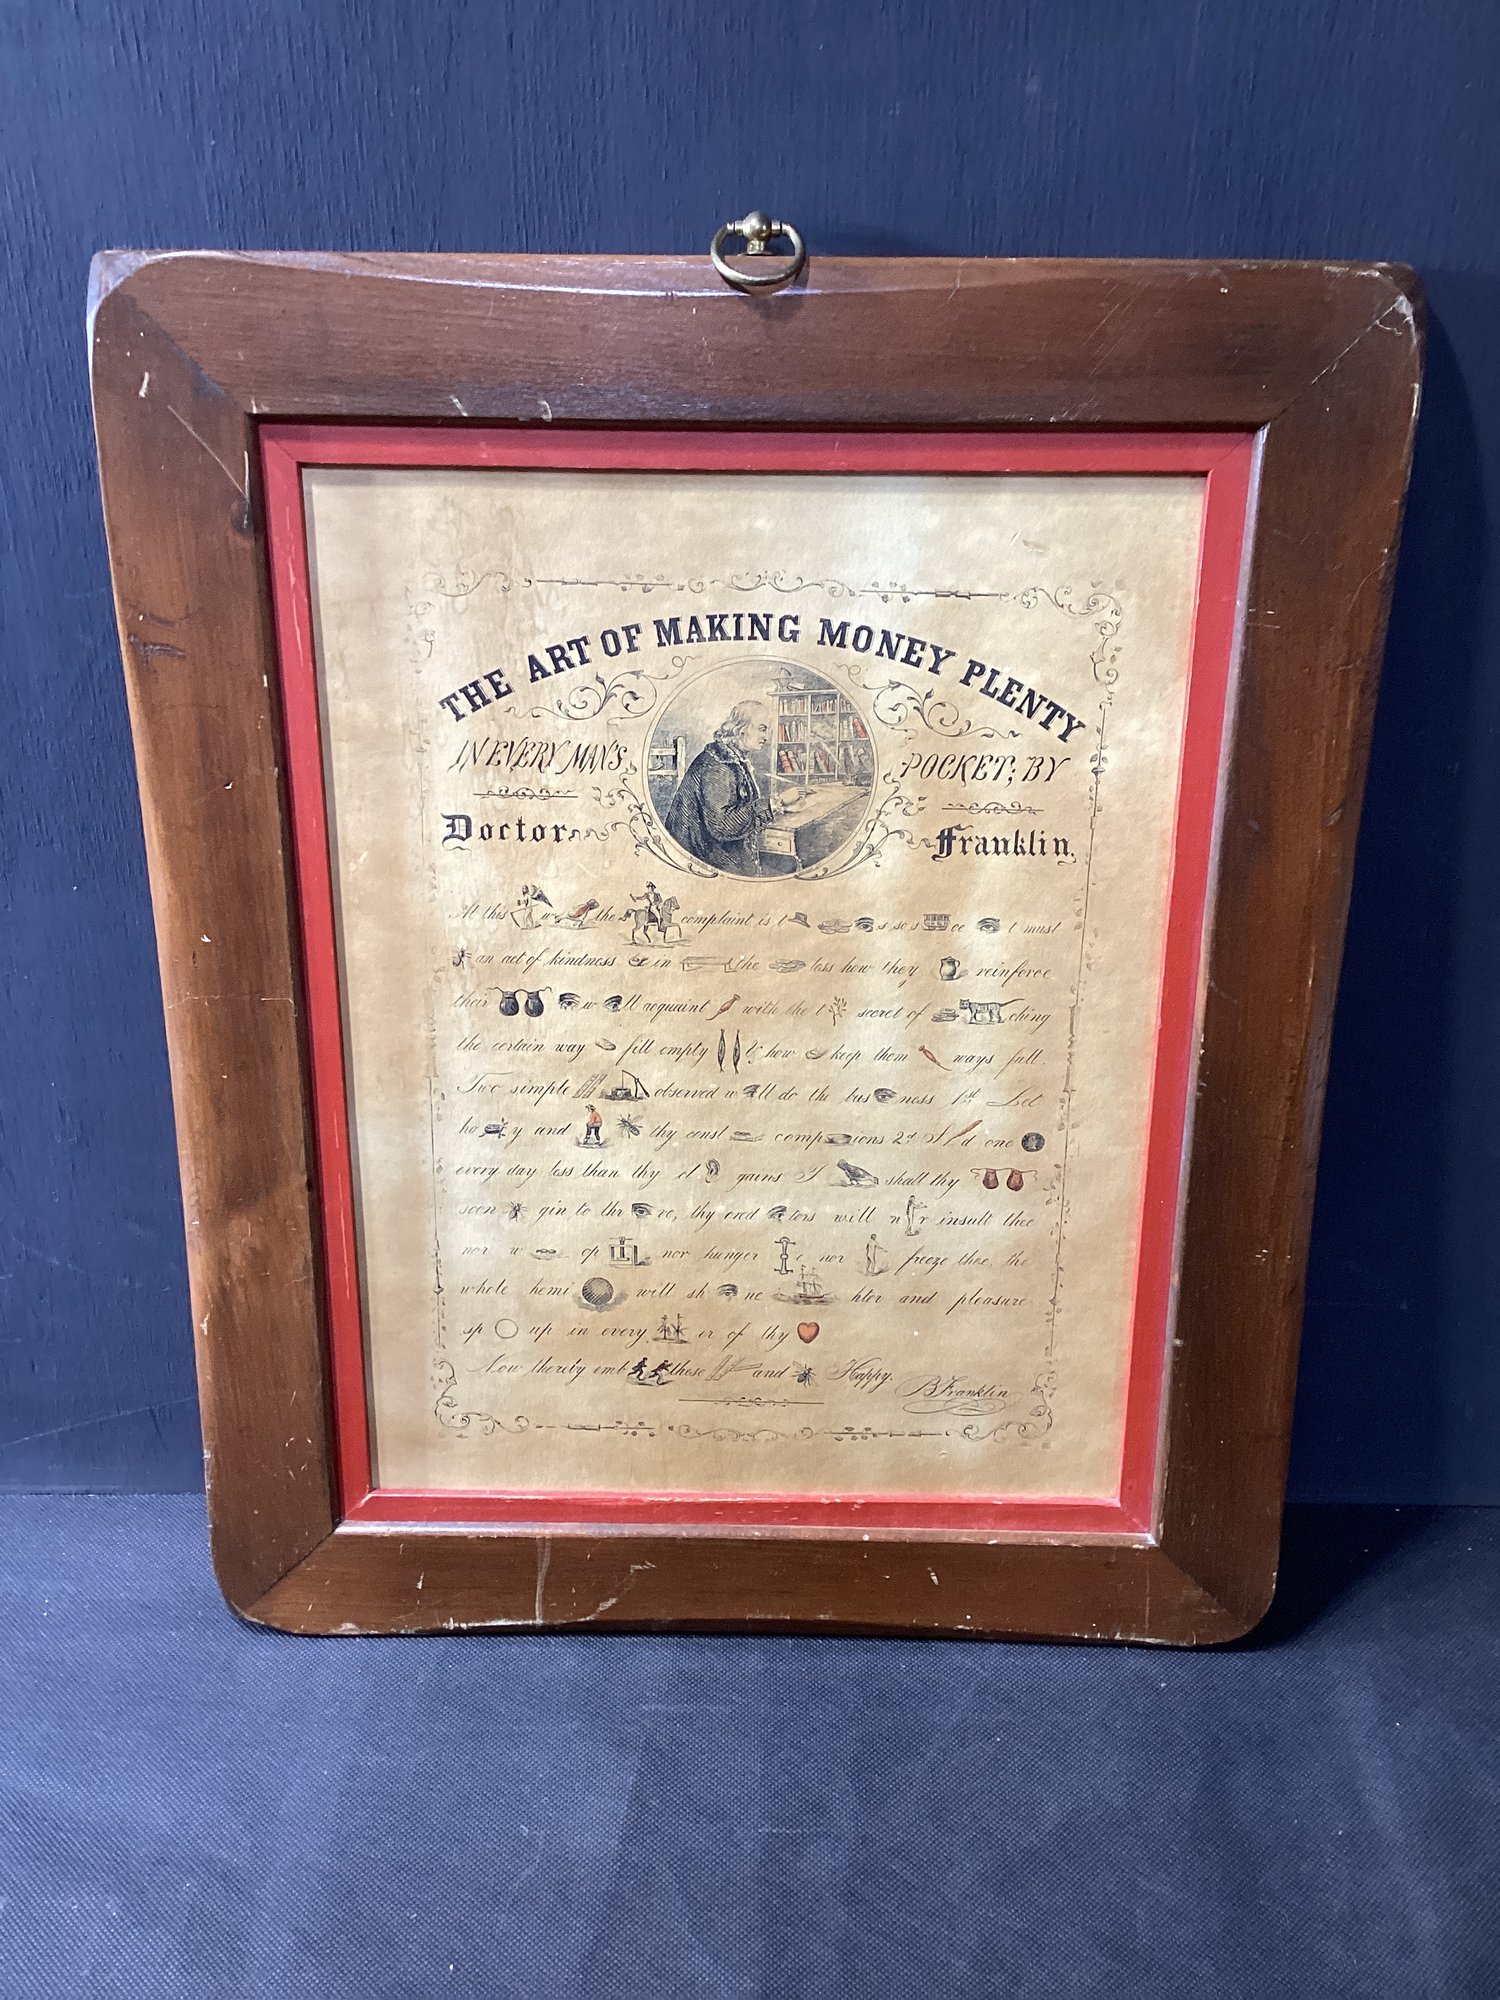 THE ART OF MAKING MONEY PLENTY
IN EVERY MAN'S POCKET; BY
Doctor Franklin.
At this w the complaint is t s so s ce t must
an act of kindness in the less how they reinforce
their w ll acquaint with the t secret of ching
the certain way fill empty & how keep them ways full.
Two simple observed w ll do the bus ness 1st Let
ho y and thy const comp ions 2d S d one
every day less than thy cl gains T shall thy
soon gin to thr ve, thy cred tors will n r insult thee
nor w op nor hunger e nor freeze thee. the
whole hemi will sh ne hter and pleasure
sp up in every er of thy
Now thereby emb these and Happy.
B Franklin